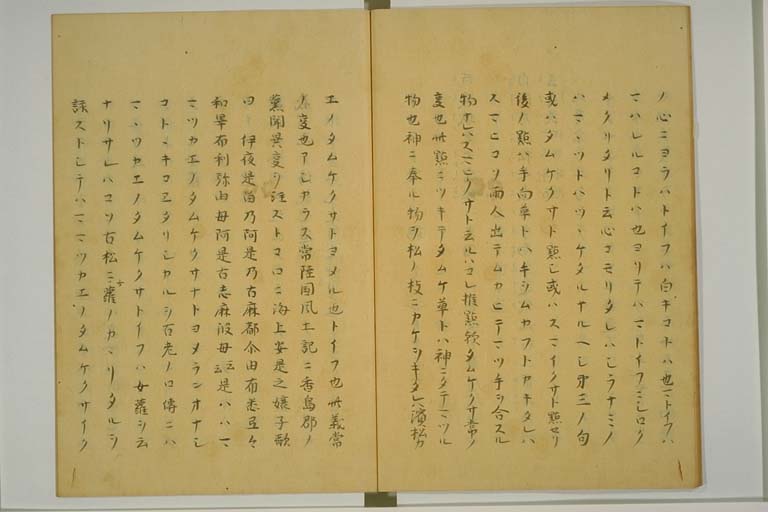 ノ心ニヨラハトイフハ白キコトハ也マトイフハ
マハレルコトハ也ヨリテハマトイフニシロク
メクリタリト云心コモリタレハシラナミノ
ハママツトハツヽケタルナルヘシ第三ノ句
或ハタムケクサト點シ或ハスマイクサト點セリ
後ノ點ハ手向草トハキシムカフトカキタレハ
スマヒコソ両人出テムカヒテマツ手ヲ合スル
物ナレハスマヒノクサト云ルハコレ推點歟タムケクサ常ノ
変也此點ニツキテタムケ草トハ神ニタテマツル
物也神ニ奉ル物ヲ松ノ枝ニカケヲキタレハ濱松カ
エノタムケクサトヨメル也トイフ也此義常
ノ変也アシカラス常陸国風土記ニ香島郡ノ
童子女松原ヲ注ストコロニ海上安是之嬢子歌
曰 伊夜是留乃阿是乃古麻都尓由布悉弖々
和乎布利弥由母阿是古志麻波母云云是ハハマ
マツカエノタムケクサナトヨメランオナシ
コトヽキコエタリシカルヲ古老ノ口傳ニハ
マヽツカエノタムケクサトイフハ女蘿ヲ云
ナリサレハコソ古松ニ女蘿ノカヽリタルヲ
詠ストシテハハママツカエノタムケクサイク